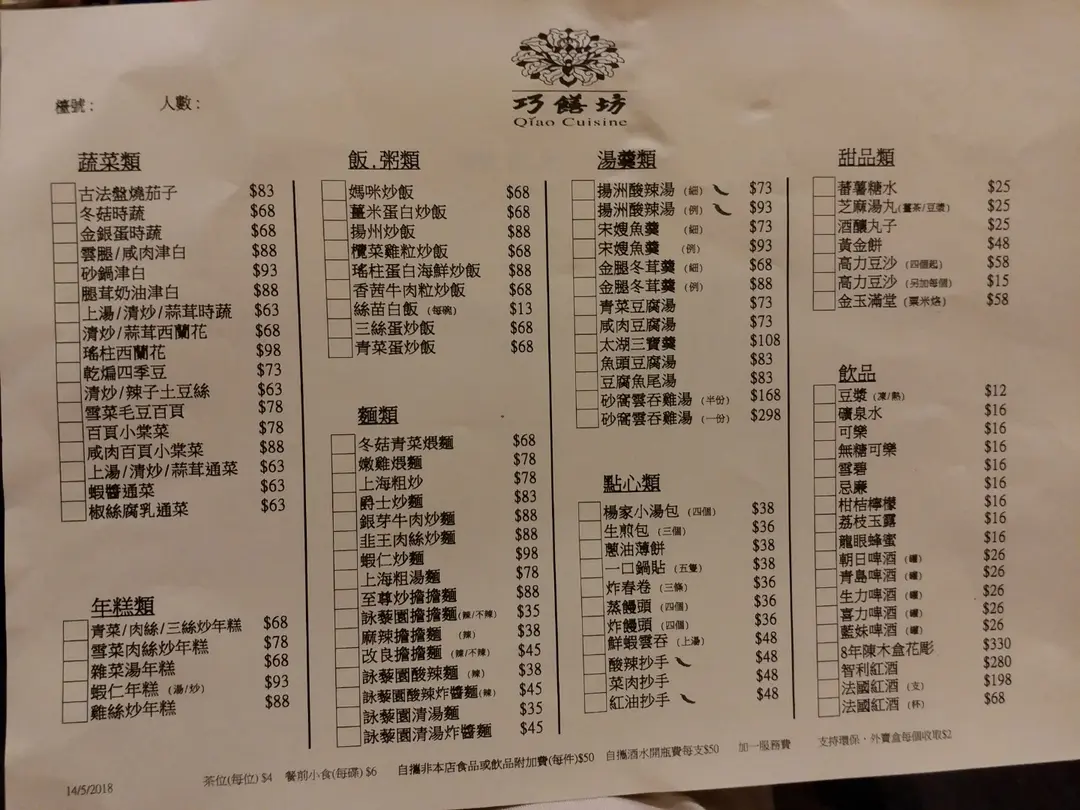 檯號：
人數：
巧饍坊
Qiao Cuisine
蔬菜類
古法盤燒茄子 $83
冬菇時蔬 $68
金銀蛋時蔬 $68
雲腿/咸肉津白 $88
砂鍋津白 $93
腿茸奶油津白 $88
上湯/清炒/蒜茸時蔬 $63
清炒/蒜茸西蘭花 $68
瑤柱西蘭花 $98
乾煸四季豆 $73
清炒/辣子土豆絲 $63
雪菜毛豆百頁 $78
百頁小棠菜 $78
咸肉百頁小棠菜 $88
上湯/清炒/蒜茸通菜 $63
蝦醬通菜 $63
椒絲腐乳通菜 $63
年糕類
青菜/肉絲/三絲炒年糕 $68
雪菜肉絲炒年糕 $78
雜菜湯年糕 $68
蝦仁年糕 (湯/炒) $93
雞絲炒年糕 $88
飯,粥類
媽咪炒飯 $68
薑米蛋白炒飯 $68
揚州炒飯 $88
欖菜雞粒炒飯 $68
瑤柱蛋白海鮮炒飯 $88
香茜牛肉粒炒飯 $68
絲苗白飯 (每碗) $13
三絲蛋炒飯 $68
青菜蛋炒飯 $68
麵類
冬菇青菜煨麵 $68
嫩雞煨麵 $78
上海粗炒 $78
爵士炒麵 $83
銀芽牛肉炒麵 $88
韭王肉絲炒麵 $88
蝦仁炒麵 $98
上海粗湯麵 $78
至尊炒擔擔麵 $88
詠藜園擔擔麵(辣/不辣) $35
麻辣擔擔麵 (辣) $38
改良擔擔麵 (辣/不辣) $45
詠藜園酸辣麵 (辣) $38
詠藜園酸辣炸醬麵(辣) $45
詠藜園清湯麵 $35
詠藜園清湯炸醬麵 $45
湯羹類
揚洲酸辣湯 (細) $73
揚洲酸辣湯 (例) $93
宋嫂魚羹 (細) $73
宋嫂魚羹 (例) $93
金腿冬茸羹 (細) $68
金腿冬茸羹 (例) $88
青菜豆腐湯 $73
咸肉豆腐湯 $73
太湖三寶羹 $108
魚頭豆腐湯 $83
豆腐魚尾湯 $83
砂窩雲吞雞湯 (半份) $168
砂窩雲吞雞湯 (一份) $298
點心類
楊家小湯包 (四個) $38
生煎包 (三個) $36
蔥油薄餅 $38
一口鍋貼 (五隻) $38
炸春卷 (三條) $36
蒸饅頭 (四個) $36
炸饅頭 (四個) $36
鮮蝦雲吞 (上湯) $48
酸辣抄手 $48
菜肉抄手 $48
紅油抄手 $48
甜品類
蕃薯糖水 $25
芝麻湯丸(薑茶/豆漿) $25
酒釀丸子 $25
黃金餅 $48
高力豆沙 (四個起) $58
高力豆沙 (另加每個) $15
金玉滿堂 (粟米烙) $58
飲品
豆漿 (凍/熱) $12
礦泉水 $16
可樂 $16
無糖可樂 $16
雪碧 $16
忌廉 $16
柑桔檸檬 $16
荔枝玉露 $16
龍眼蜂蜜 $16
朝日啤酒 (罐) $26
青島啤酒 (罐) $26
生力啤酒 (罐) $26
喜力啤酒 (罐) $26
藍妹啤酒 (罐) $26
8年陳木盒花彫 $330
智利紅酒 $280
法國紅酒 (支) $198
法國紅酒 (杯) $68
茶位(每位) $4 餐前小食(每碟) $6 自攜非本店食品或飲品附加費(每件)$50 自攜酒水開瓶費每支$50 加一服務費 支持環保，外賣盒每個收取$2
14/5/2018